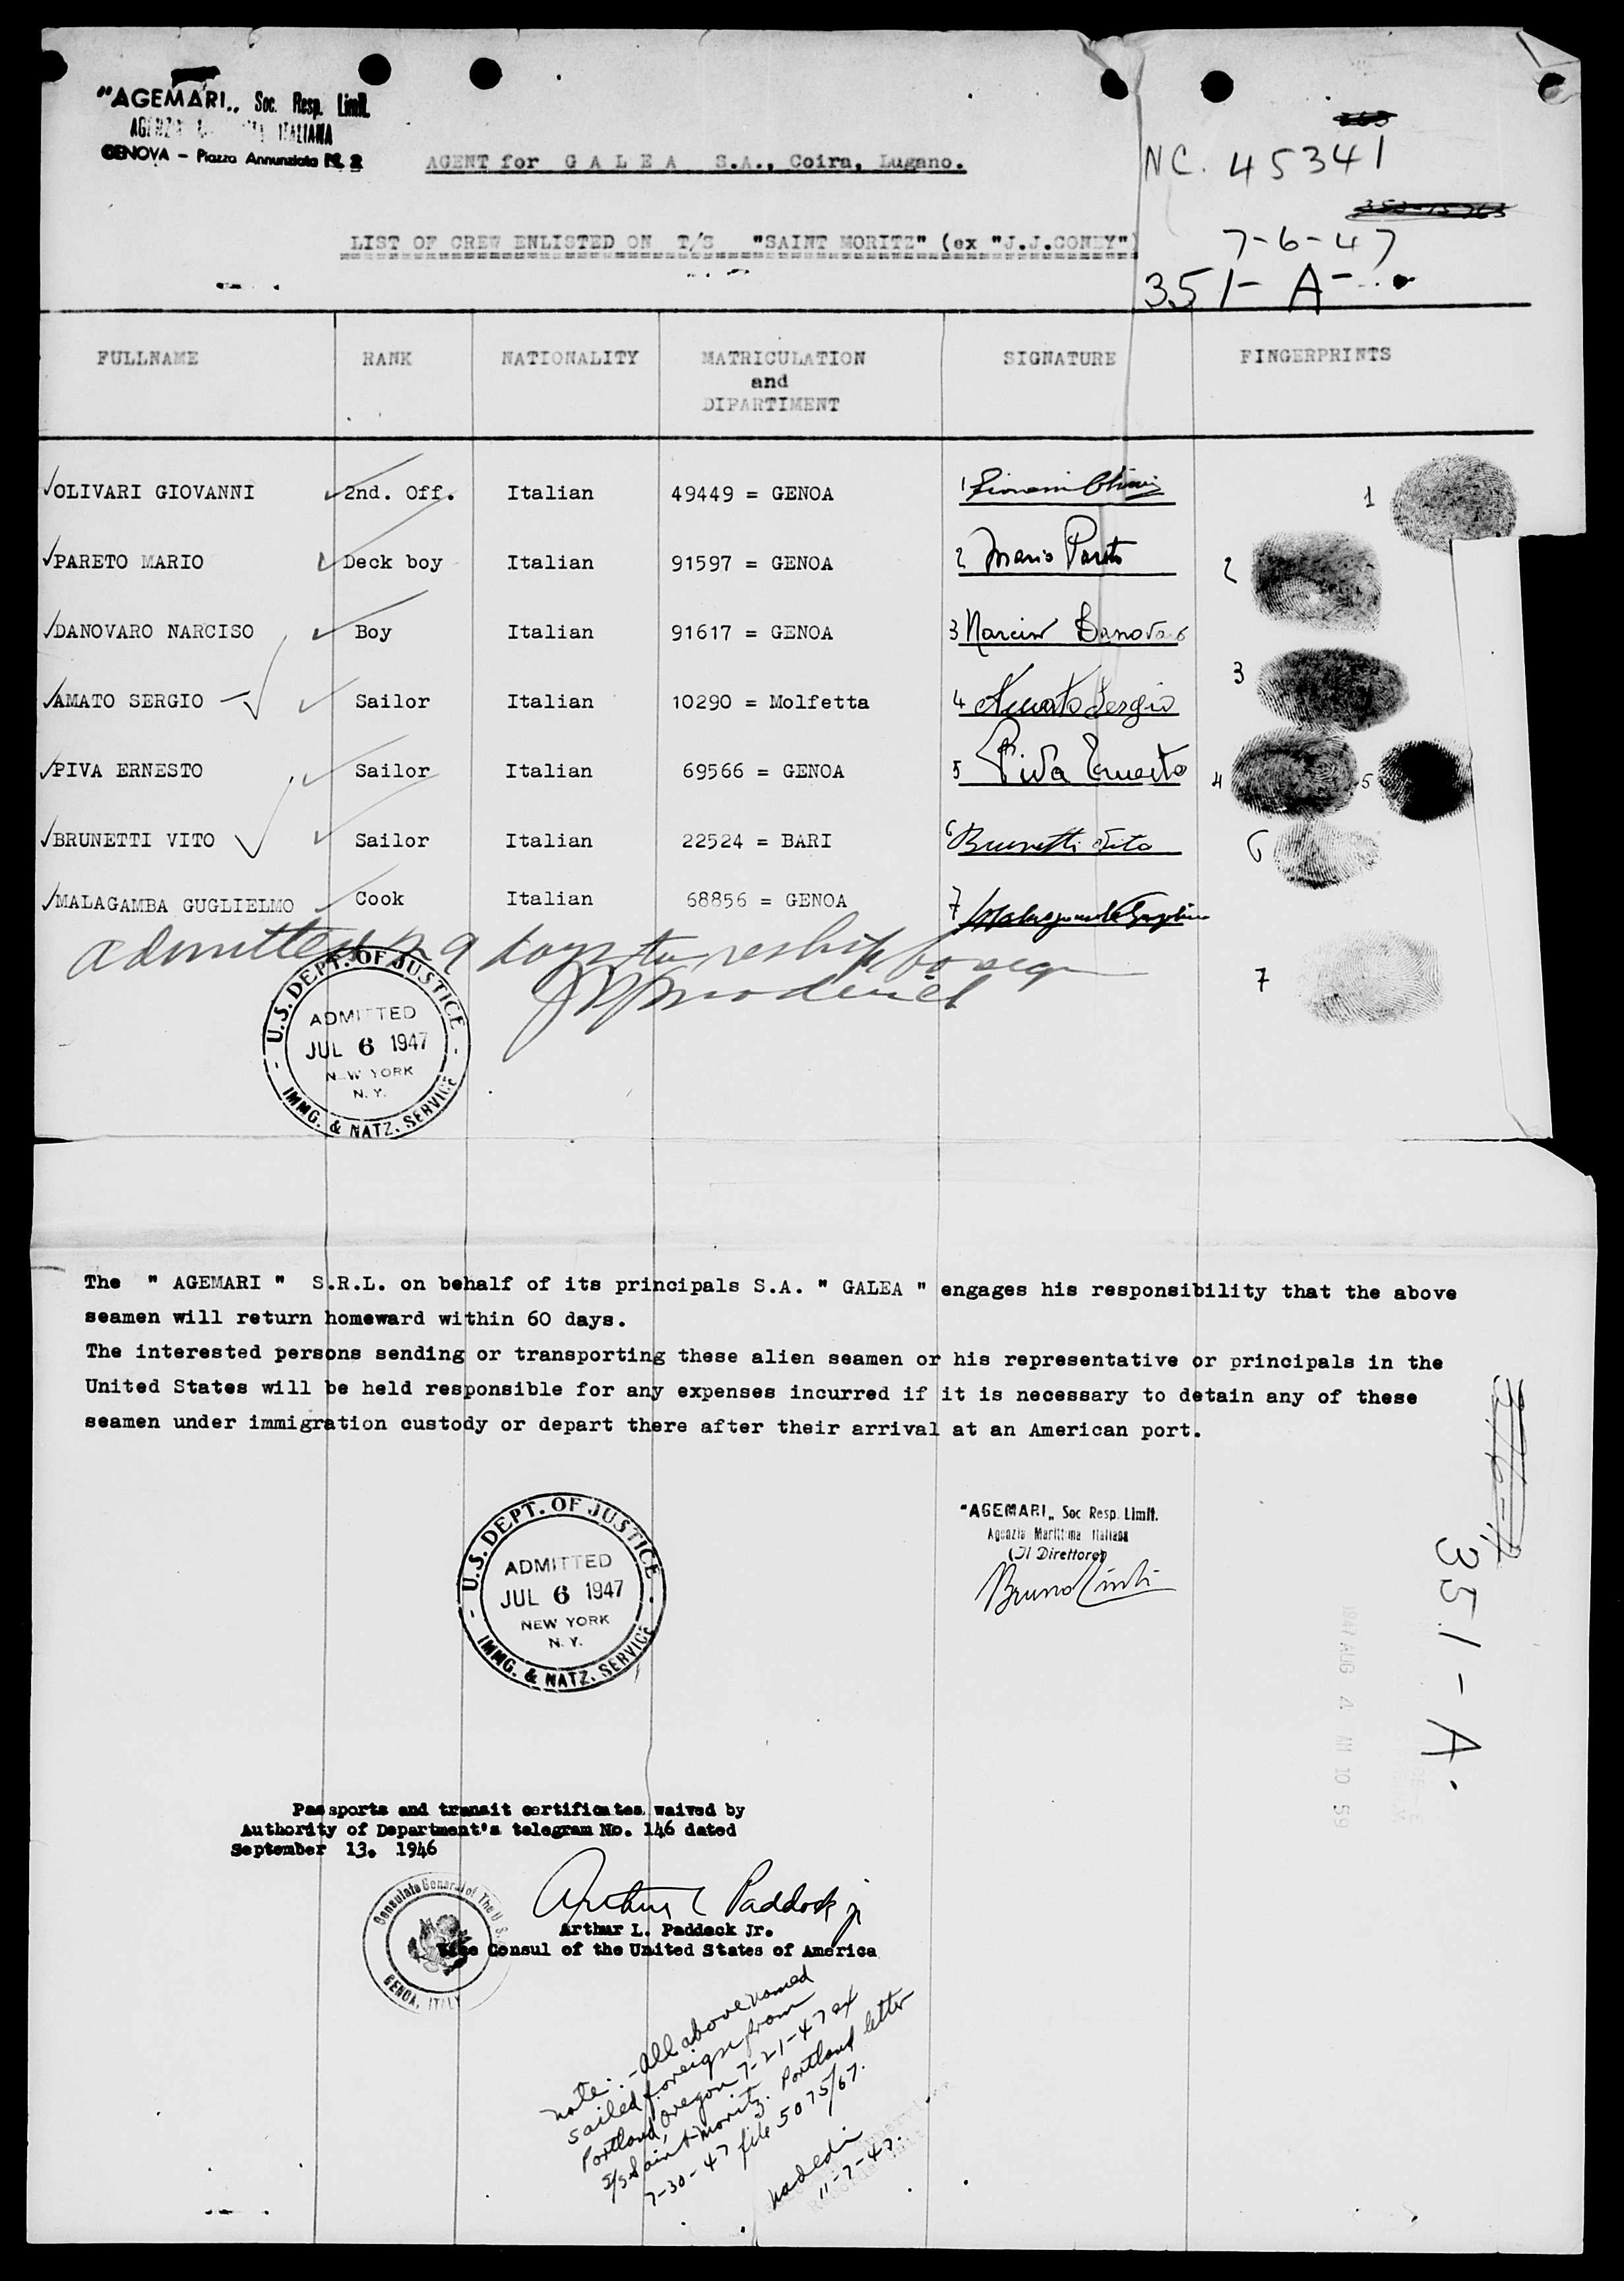 "AGEMARI„ Soc. Resp. Limit.
ITALIANA
GENOVA – Piazza Annunziata N. 2
AGENT for G A L E A S.A., Coira, Lugano.
NC. 45341
LIST OF CREW ENLISTED ON T/S "SAINT MORITZ" (ex "J.J.CONEY")
7-6-47
351- A-
FULLNAME RANK NATIONALITY MATRICULATION SIGNATURE FINGERPRINTS
and
DIPARTIMENT
OLIVARI GIOVANNI 2nd. Off. Italian 49449 = GENOA 1 Giovanni Olivari 1
PARETO MARIO Deck boy Italian 91597 = GENOA 2 Mario Pareto 2
DANOVARO NARCISO Boy Italian 91617 = GENOA 3 Narciso Danovaro 3
AMATO SERGIO Sailor Italian 10290 = Molfetta 4 Amato Sergio 4
PIVA ERNESTO Sailor Italian 69566 = GENOA 5 Piva Ernesto 5
BRUNETTI VITO Sailor Italian 22524 = BARI 6 Brunetti Vito 6
MALAGAMBA GUGLIELMO Cook Italian 68856 = GENOA 7 Malagamba Guglielmo 7
admitted 29 days to reship foreign
U.S. DEPT. OF JUSTICE
ADMITTED
JUL 6 1947
NEW YORK
N. Y.
IMMG. & NATZ. SERVICE
The " AGEMARI " S.R.L. on behalf of its principals S.A. " GALEA " engages his responsibility that the above
seamen will return homeward within 60 days.
The interested persons sending or transporting these alien seamen or his representative or principals in the
United States will be held responsible for any expenses incurred if it is necessary to detain any of these
seamen under immigration custody or depart there after their arrival at an American port.
U.S. DEPT. OF JUSTICE
ADMITTED
JUL 6 1947
NEW YORK
N. Y.
IMMG. & NATZ. SERVICE
"AGEMARI„ Soc. Resp. Limit.
Agenzia Marittima Italiana
(Il Direttore)
Bruno
351-A.
1947 AUG 4 AM 10 59
Passports and transit certificates waived by
Authority of Department's telegram No. 146 dated
September 13. 1946
Arthur L Paddock jr
Arthur L. Paddock Jr.
Vice Consul of the United States of America
Consulate General of The U.S.
GENOA, ITALY
note:- All above named
sailed foreign from
Portland, Oregon 7-21-47 ex
s/s Saint Moritz. Portland letter
7-30-47 file 5075/67.
11-7-47.